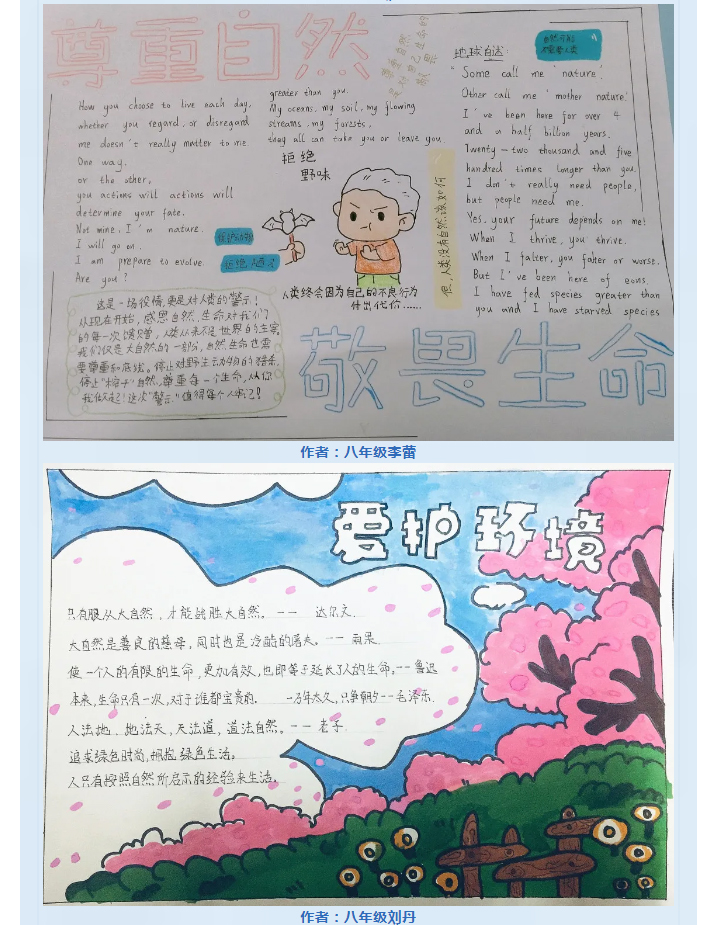 尊重自然
尊重自然
是对自己生命的
地球自述:
自然不能
Some call me 'nature'.
Other call me 'mother nature'
I've been here for over 4
and a half billion years.
Twenty-two thousand and five
hundred times longer than you.
I don't really need people,
but people need me.
Yes, your future depends on me!
When I thrive, you thrive.
When I falter, you falter or worse.
But I've been here of eons.
I have fed species greater than
you and I have starved species
greater than you.
My oceans, my soil, my flowing
streams, my forests,
they all can take you or leave you.
How you choose to live each day,
whether you regard, or disregard
me doesn't really matter to me.
One way.
or the other,
you actions will actions will
determine your fate.
Not mine, I'm nature.
I will go on.
I am prepare to evolve.
Are you?
拒绝
野味
但,人类没有自然,该如何
人类终会因为自己的不良行为
付出代价......
这是一场疫情,更是对人类的警示!
从现在开始,感恩自然、生命对我们
的每一次馈赠,人类从来不是世界的主宰,
我们仅是大自然的一部分,自然、生命也需
要尊重和庇佑。停止对野生动物的猎杀,
停止"糟子"自然,尊重每一个生命,从你
我做起!这次"警示"值得每个人铭记!
敬畏生命
作者：八年级李蕾
爱护环境
只有服从大自然，才能战胜大自然。-- 达尔文.
大自然是善良的慈母，同时也是冷酷的屠夫。-- 雨果
使一个人的有限的生命，更加有效，也即等于延长了人的生命。-- 鲁迅
本来，生命只有一次，对于谁都宝贵的. 一万年太久，只争朝夕 -- 毛泽东.
人法地、地法天，天法道，道法自然。-- 老子.
追求绿色时尚，拥抱绿色生活。
人只有按照自然所启示的经验来生活.
作者：八年级刘丹